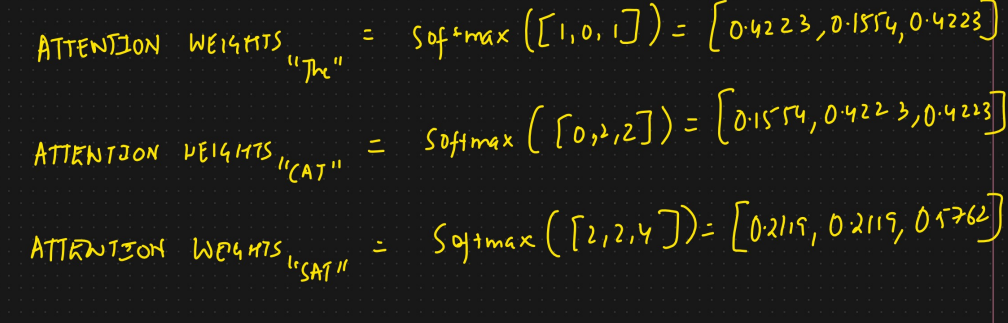 ATTENTION WEIGHTS "The" = Softmax ([1,0,1]) = [0.4223,0.1554,0.4223]
ATTENTION WEIGHTS "CAT" = Softmax ([0,2,2]) = [0.1554,0.4223,0.4223]
ATTENTION WEIGHTS "SAT" = Softmax ([2,2,4]) = [0.2119, 0.2119, 0.5762]